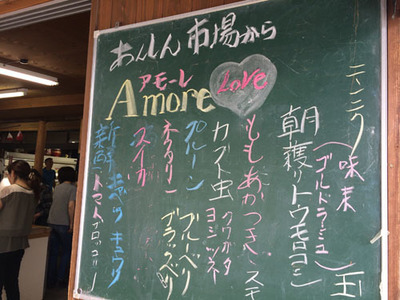 あんしん市場から
アモーレ
Amore
Love
味来
ゴールドラッシュ
玉
朝穫りトウモロコシ
ももあかつき、ステ
カブト虫
クワガタ
ヨシツネ
プルーン
ブルーベリ
ネクタリン
ブラックベリ
スイカ
新鮮
キュウリ
トマト
ブロッコリー